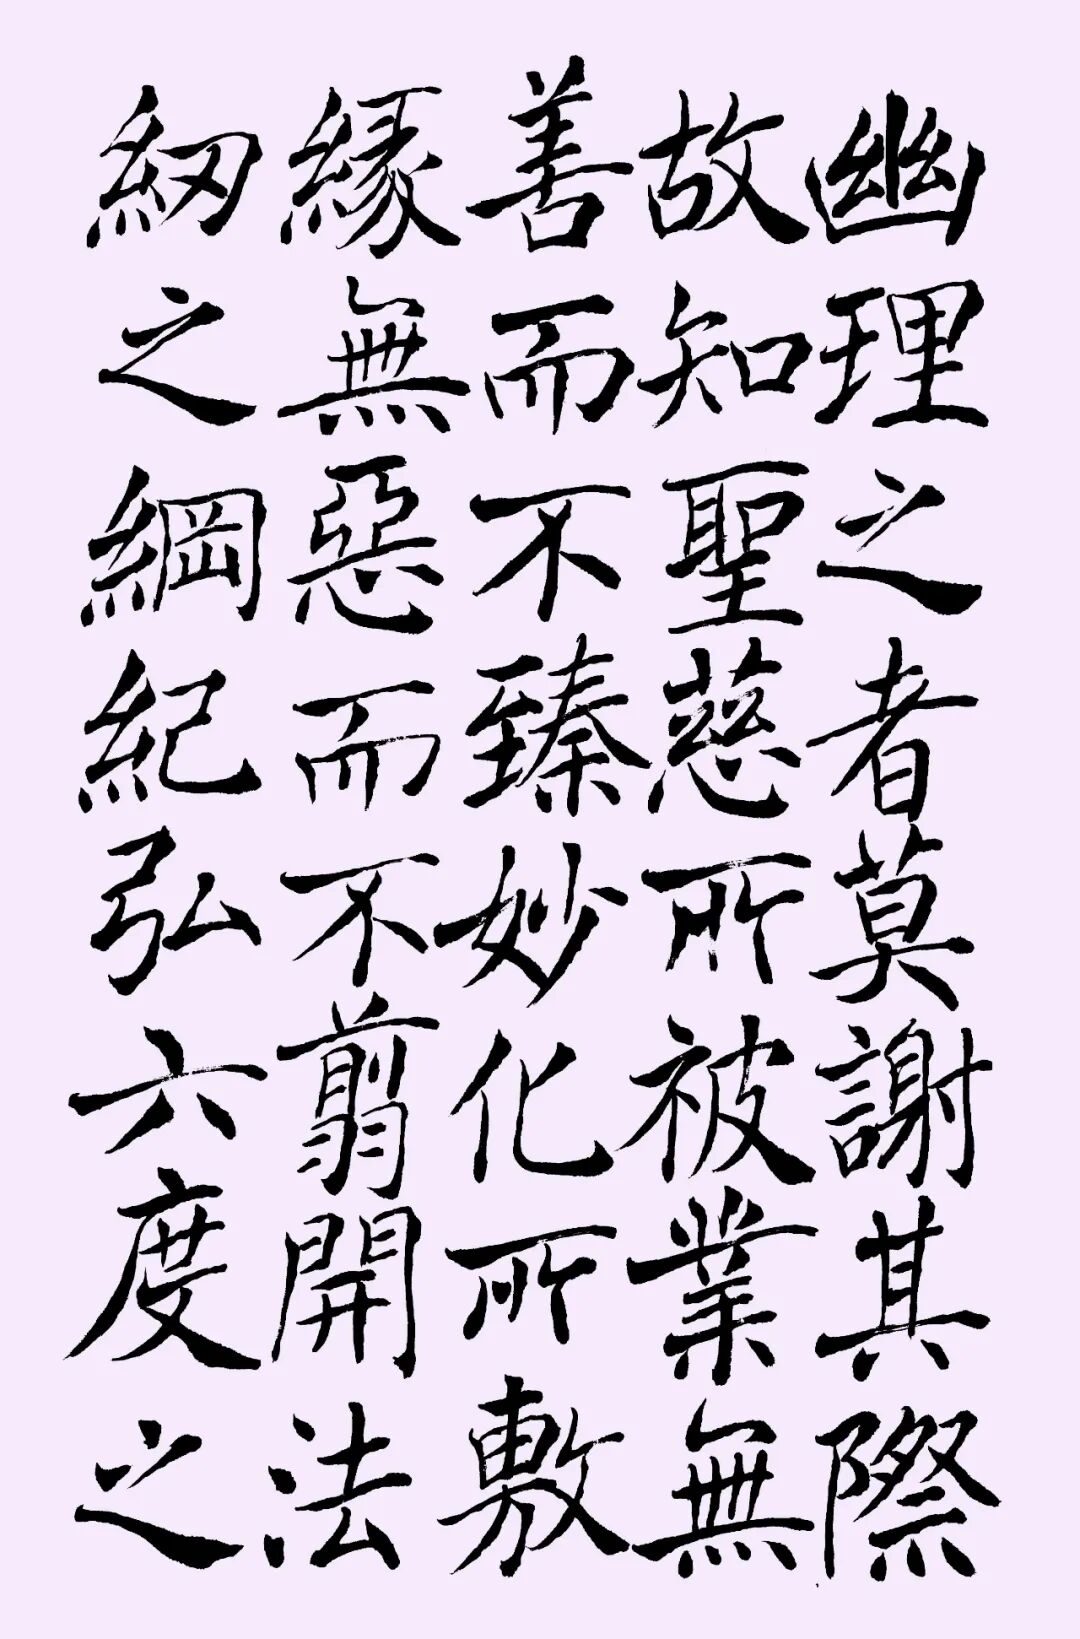 幽理之者莫謝其際
故知聖慈所被業無
善而不臻妙化所敷
緣無惡而不翦開法
網之綱紀弘六度之